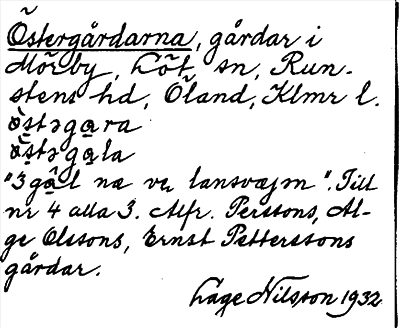 Östergårdarna, gårdar i
Mörby, Löt sn, Run-
stens hd, Öland, Klmr l.
òstəgara
òstəgala
"3 gâl næ va lansvæjm". Till
nr 4 alla 3. Alfr. Perssons, Al-
ge Olssons, Ernst Petterssons
gårdar.
Låge Nilsson 1932